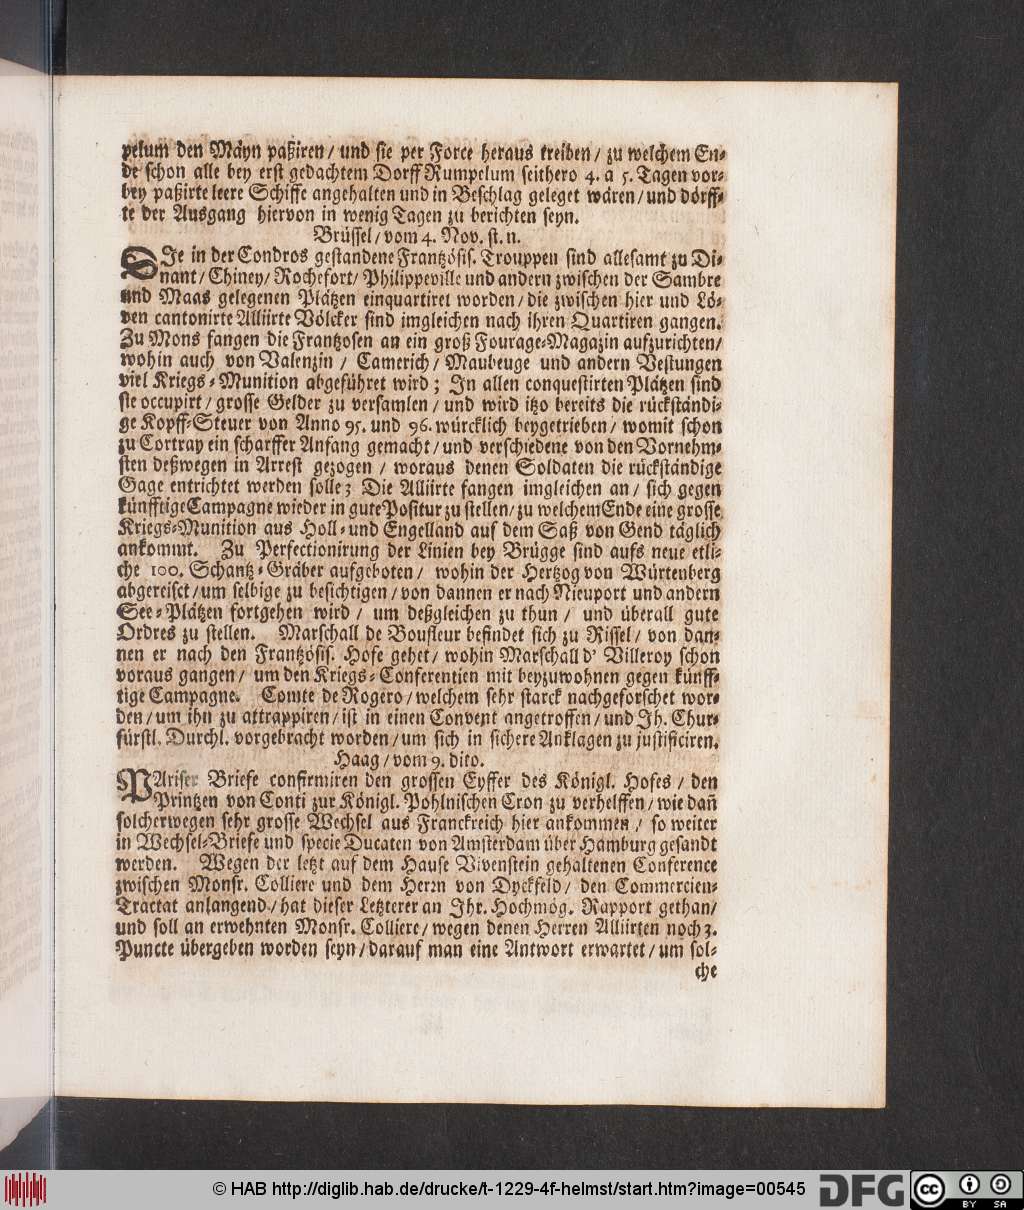 pelum den Mäyn paßiren / und sie per Force heraus treiben / zu welchem En-
de schon alle bey erst gedachtem Dorff Rumpelum seithero 4. a 5. Tagen vor-
bey paßirte leere Schiffe angehalten und in Beschlag geleget wären / und dörff-
te der Ausgang hiervon in wenig Tagen zu berichten seyn.
Brüssel / vom 4. Nov. st. n.
DIe in der Condros gestandene Frantzösis. Trouppen sind allesamt zu Di-
nant / Chiney / Rochefort / Philippeville und andern zwischen der Sambre
und Maas gelegenen Plätzen einquartiret worden / die zwischen hier und Lö-
ven cantonirte Alliirte Völcker sind imgleichen nach ihren Quartiren gangen.
Zu Mons fangen die Frantzosen an ein groß Fourage-Magazin aufzurichten /
wohin auch von Valenzin / Camerich / Maubeuge und andern Vestungen
viel Kriegs-Munition abgeführet wird ; In allen conquestirten Plätzen sind
sie occupirt / grosse Gelder zu versamlen / und wird itzo bereits die rückständi-
ge Kopff-Steuer von Anno 95. und 96. würcklich beygetrieben / womit schon
zu Cortray ein scharffer Anfang gemacht / und verschiedene von den Vornehm-
sten deßwegen in Arrest gezogen / woraus denen Soldaten die rückständige
Gage entrichtet werden solle; Die Alliirte fangen imgleichen an / sich gegen
künfftige Campagne wieder in gute Positur zu stellen / zu welchem Ende eine grosse
Kriegs-Munition aus Holl- und Engelland auf dem Saß von Gend täglich
ankommt. Zu Perfectionirung der Linien bey Brügge sind aufs neue etli-
che 100. Schantz-Gräber aufgeboten / wohin der Hertzog von Würtenberg
abgereiset / um selbige zu besichtigen / von dannen er nach Nieuport und andern
See-Plätzen fortgehen wird / um deßgleichen zu thun / und überall gute
Ordres zu stellen. Marschall de Boufleur befindet sich zu Rissel / von dan-
nen er nach den Frantzösis. Hofe gehet / wohin Marschall d' Villeroy schon
voraus gangen / um den Kriegs-Conferentien mit beyzuwohnen gegen künff-
tige Campagne. Comte de Rogero / welchem sehr starck nachgeforschet wor-
den / um ihn zu attrappiren / ist in einen Convent angetroffen / und Ih. Chur-
fürstl. Durchl. vorgebracht worden / um sich in sichere Anklagen zu justificiren.
Haag / vom 9. dito.
PAriser Briefe confirmiren den grossen Eyffer des Königl. Hofes / den
Printzen von Conti zur Königl. Pohlnischen Cron zu verhelffen / wie dañ
solcherwegen sehr grosse Wechsel aus Franckreich hier ankommen / so weiter
in Wechsel-Briefe und specie Ducaten von Amsterdam über Hamburg gesandt
werden. Wegen der letzt auf dem Hause Vivenstein gehaltenen Conference
zwischen Monsr. Colliere und dem Herrn von Dyckfeld / den Commercien-
Tractat anlangend / hat dieser Letzterer an Ihr. Hochmög. Rapport gethan /
und soll an erwehnten Monsr. Colliere / wegen denen Herren Alliirten noch 3.
Puncte übergeben worden seyn / darauf man eine Antwort erwartet / um sol-
che
© HAB http://diglib.hab.de/drucke/t-1229-4f-helmst/start.htm?image=00545
DFG
cc
BY SA